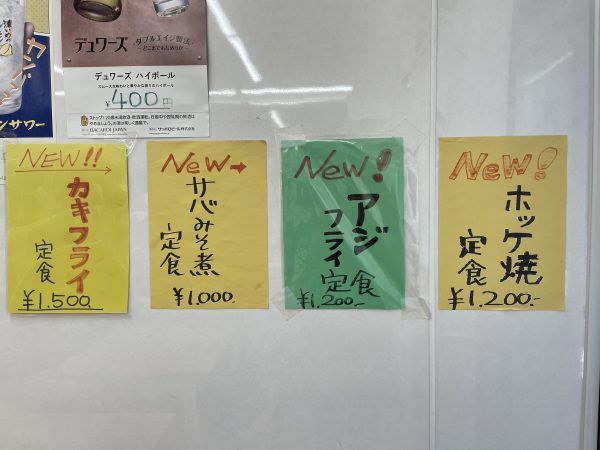 カジノ
ンサワー
デュワーズ
ダブルエイジ製法
デュワーズ ハイボール
¥400円
BACARDI JAPAN
サッポロビール株式会社
NEW!!
カキフライ
定食
¥1.500.
NEW→
サバみそ煮
定食
¥1.000.
NEW!
アジ
フライ
定食
¥1.200-
NEW!
ホッケ焼
定食
¥1.200.-